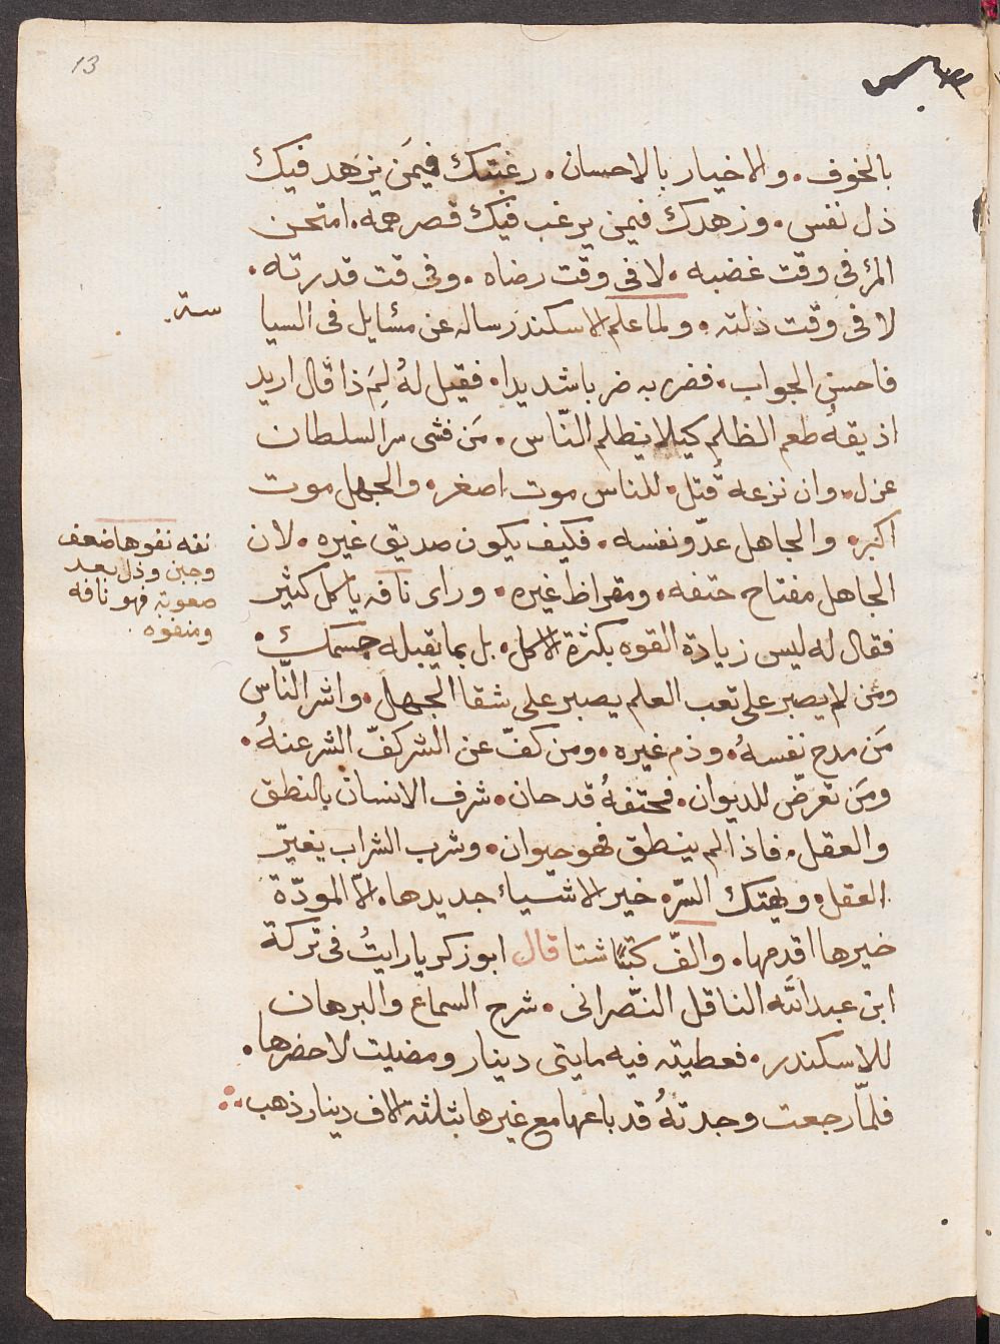 13
بالخوف. والاخيار بالاحسان. رغبتك فيمَن يزهد فيك
ذل نفس. وزهدك فيمن يرغب فيك قصر همه. امتحن
المرٔ فى وقت غضبه. لا فى وقت رضاه. وفى قت قدرته.
لا فى وقت ذلته. ولما علم الاسكندر ساله عن مسٔايل فى السيا
سته.
فاحسن الجواب. فضربه ضربا شديدا. فقيل لهُ لِمَ ذا قال اريد
اذيقهُ طعم الظلم كيلا يظلم النّاس. مَن فشى سرّ السلطان
عزل. وان نزعه قُتل. للناس موت اصغر. والجهل موت
اكبر. والجاهل عدّو نفسه. فكيف يكون صديق غيره. لان
الجاهل مفتاح حتفه. ومقراظ غيره. وراى نافه ياكل كثير
نفه نفوها ضعف
وجبن وذل بعد
صعوبة فهو نافه
ومنفوه.
فقال له ليس زيادة القوه بكثرة الاكل. بل بما يقبله جسمك.
ومَن لم يصبر على تعب العلم يصبر على شقا الجهل. واشر النّاس
مَن مدح نفسهُ. وذم غيره. ومن كفّ عن الشر كفّ الشر عنهُ.
ومَن تعرّض للديوان. فحتفهُ قد حان. شرف الانسان بالنطق
والعقل. فاذا لم ينطق فهو حيوان. وشرب الشراب يغيّر
العقل. ويهتك السّر. خير الاشياء جديدها. الّا المودّة
خيرها اقدمها. والفّ كتبًا شتا قال ابو زكريا رايتُ فى تركة
ابن عبد اللّه الناقل النّصرانى. شرح السماع والبرهان
للاسكندر. فعطيته فيه مايتى دينار ومضيت لاحضرها.
فلمّا رجعت وجدتهُ قد باعها مع غيرها بثلثة الاف دينار ذهب.